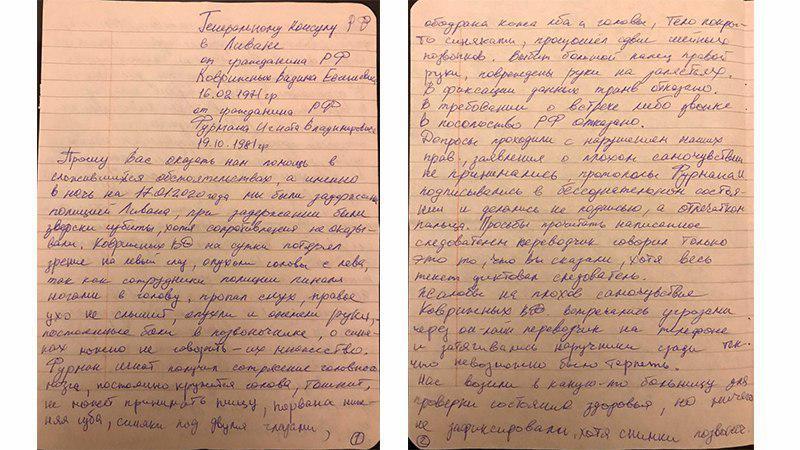 Генеральному консулу РФ
в Ливане
от гражданина РФ
Ковржиных Вадима
16.02.1971 гр
от гражданина РФ
Фурмана Игната Владимировича
19.10.1981 гр
Прошу Вас оказать нам помощь в
сложившихся обстоятельствах, а именно
в ночь на 17.01.2020 года мы были задержаны
полицией Ливана, при задержании были
зверски избиты, хотя сопротивления не оказы-
вали. Ковржиных ВФ на сутки потерял
зрение на левый глаз, опухоли головы с лева,
так как сотрудники полиции пинали
ногами в голову, пропал слух, правое
ухо не слышит, опухли и онемели руки,
постоянные боли в позвоночнике, о синя-
ках можно не говорить - их множество.
Фурман Игнат получил сотрясение головного
мозга, постоянно кружится голова, тошнит,
не может принимать пищу, порвана ниж-
няя губа, синяки под двумя глазами,
1
ободрана кожа лба и головы, тело покры-
то синяками, произошел сдвиг шейных
позвонков. Выбит большой палец правой
руки, повреждены руки на запястьях.
В фиксации данных травм отказано.
В требовании о встрече либо звонке
в посольство РФ отказано.
Допросы проходили с нарушением наших
прав, заявления о плохом самочувствии
не принимались, протоколы Фурманам
подписывались в бессознательном состоя-
нии и делались не подписью, а отпечатком
пальца. Просьбы прочитать написанное
следователем переводчик говорил только
это то, что вы сказали, хотя весь
текст диктовал следователь.
Жалобы на плохое самочувствие
Ковржиных ВФ. встречались угрозами
через он-лайн переводчик на телефоне
и затягивались наручники сзади так
что невозможно было терпеть.
Нас возили в какую-то больницу для
проверки состояния здоровья, но ничего
не зафиксировали, хотя снимки позвоноч.
2